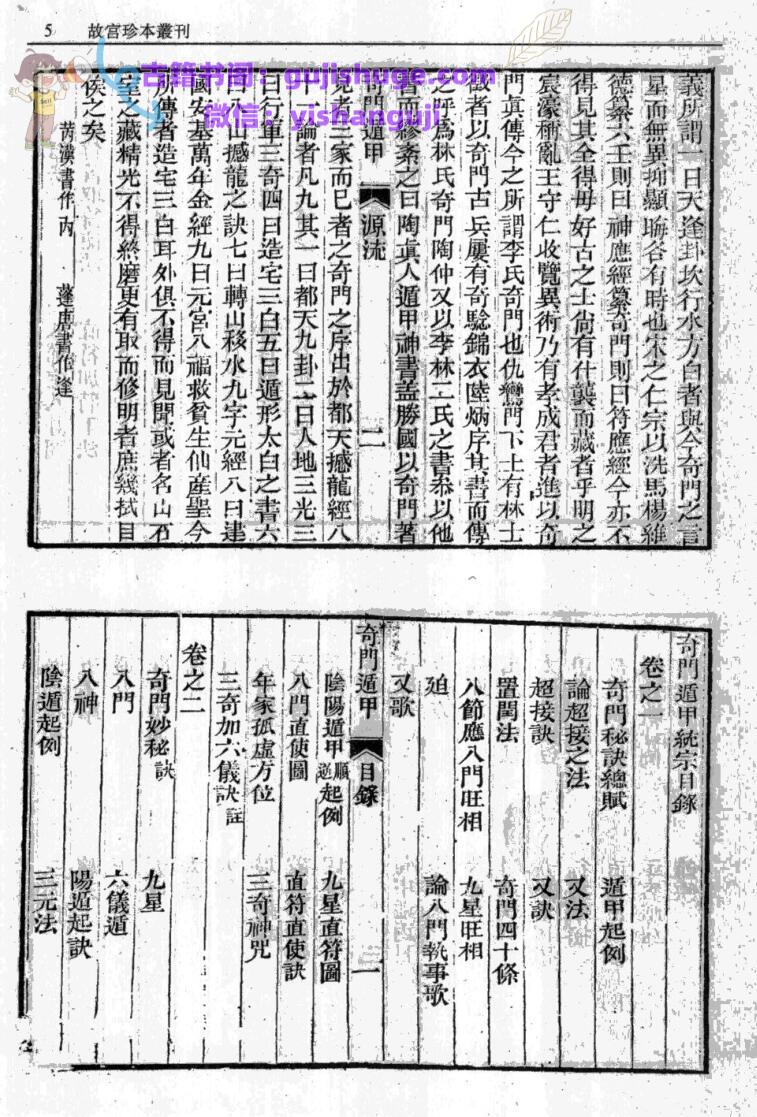 5 故宮珍本叢刊
古籍书阁：gujishuge.com
微信：yishanguji
義所謂一曰天逢卦坎行水方白者與今奇門之言
星而無異抑顯晦各有時也宋之仁宗以洗馬楊維
德纂六壬則曰神應經纂奇門則曰符應經今亦不
得見其全得毋好古之士尙有什襲而藏者乎明之
宸濠稱亂王守仁收覽異術乃有李成君者進以奇
門眞傳今之所謂李氏奇門也仇鸞門下士有林士
徵者以奇門古兵屢有奇騐錦衣陸炳序其書而傳
之呼爲林氏奇門陶仲文以李林二氏之書叅以他
書而繆紊之曰陶眞人遁甲神書蓋勝國以奇門著
奇門遁甲 源流 二
見者三家而已者之奇門之序出於都天撼龍經八
十一論者凡九其一曰都天九卦二曰人地三光三
曰行軍三奇四曰造宅三白五曰遁形太白之書六
曰八山撼龍之訣七曰轉山移水九字元經八曰建
國安基萬年金經九曰元宮八福救貧生仙產聖今
所傳者造宅三白耳外俱不得而見聞或者名山石
室之藏精光不得終磨更有取而修明者庶幾拭目
俟之矣
芮漢書作內 蓬唐書作逢
奇門遁甲統宗目錄
卷之一
奇門秘訣總賦 遁甲起例
論超接之法 又法
超接訣 又訣
置閏法 奇門四十條
八節應八門旺相 九星旺相
迫 論八門執事歌
又歌
奇門遁甲 目錄 一
陰陽遁甲順逆起例 九星直符圖
八門直使圖 直符直使訣
年家孤虛方位 三奇神咒
三奇加六儀訣註
卷之二
奇門妙秘訣 九星
八門 六儀遁
八神 陽遁起訣
陰遁起例 三元法